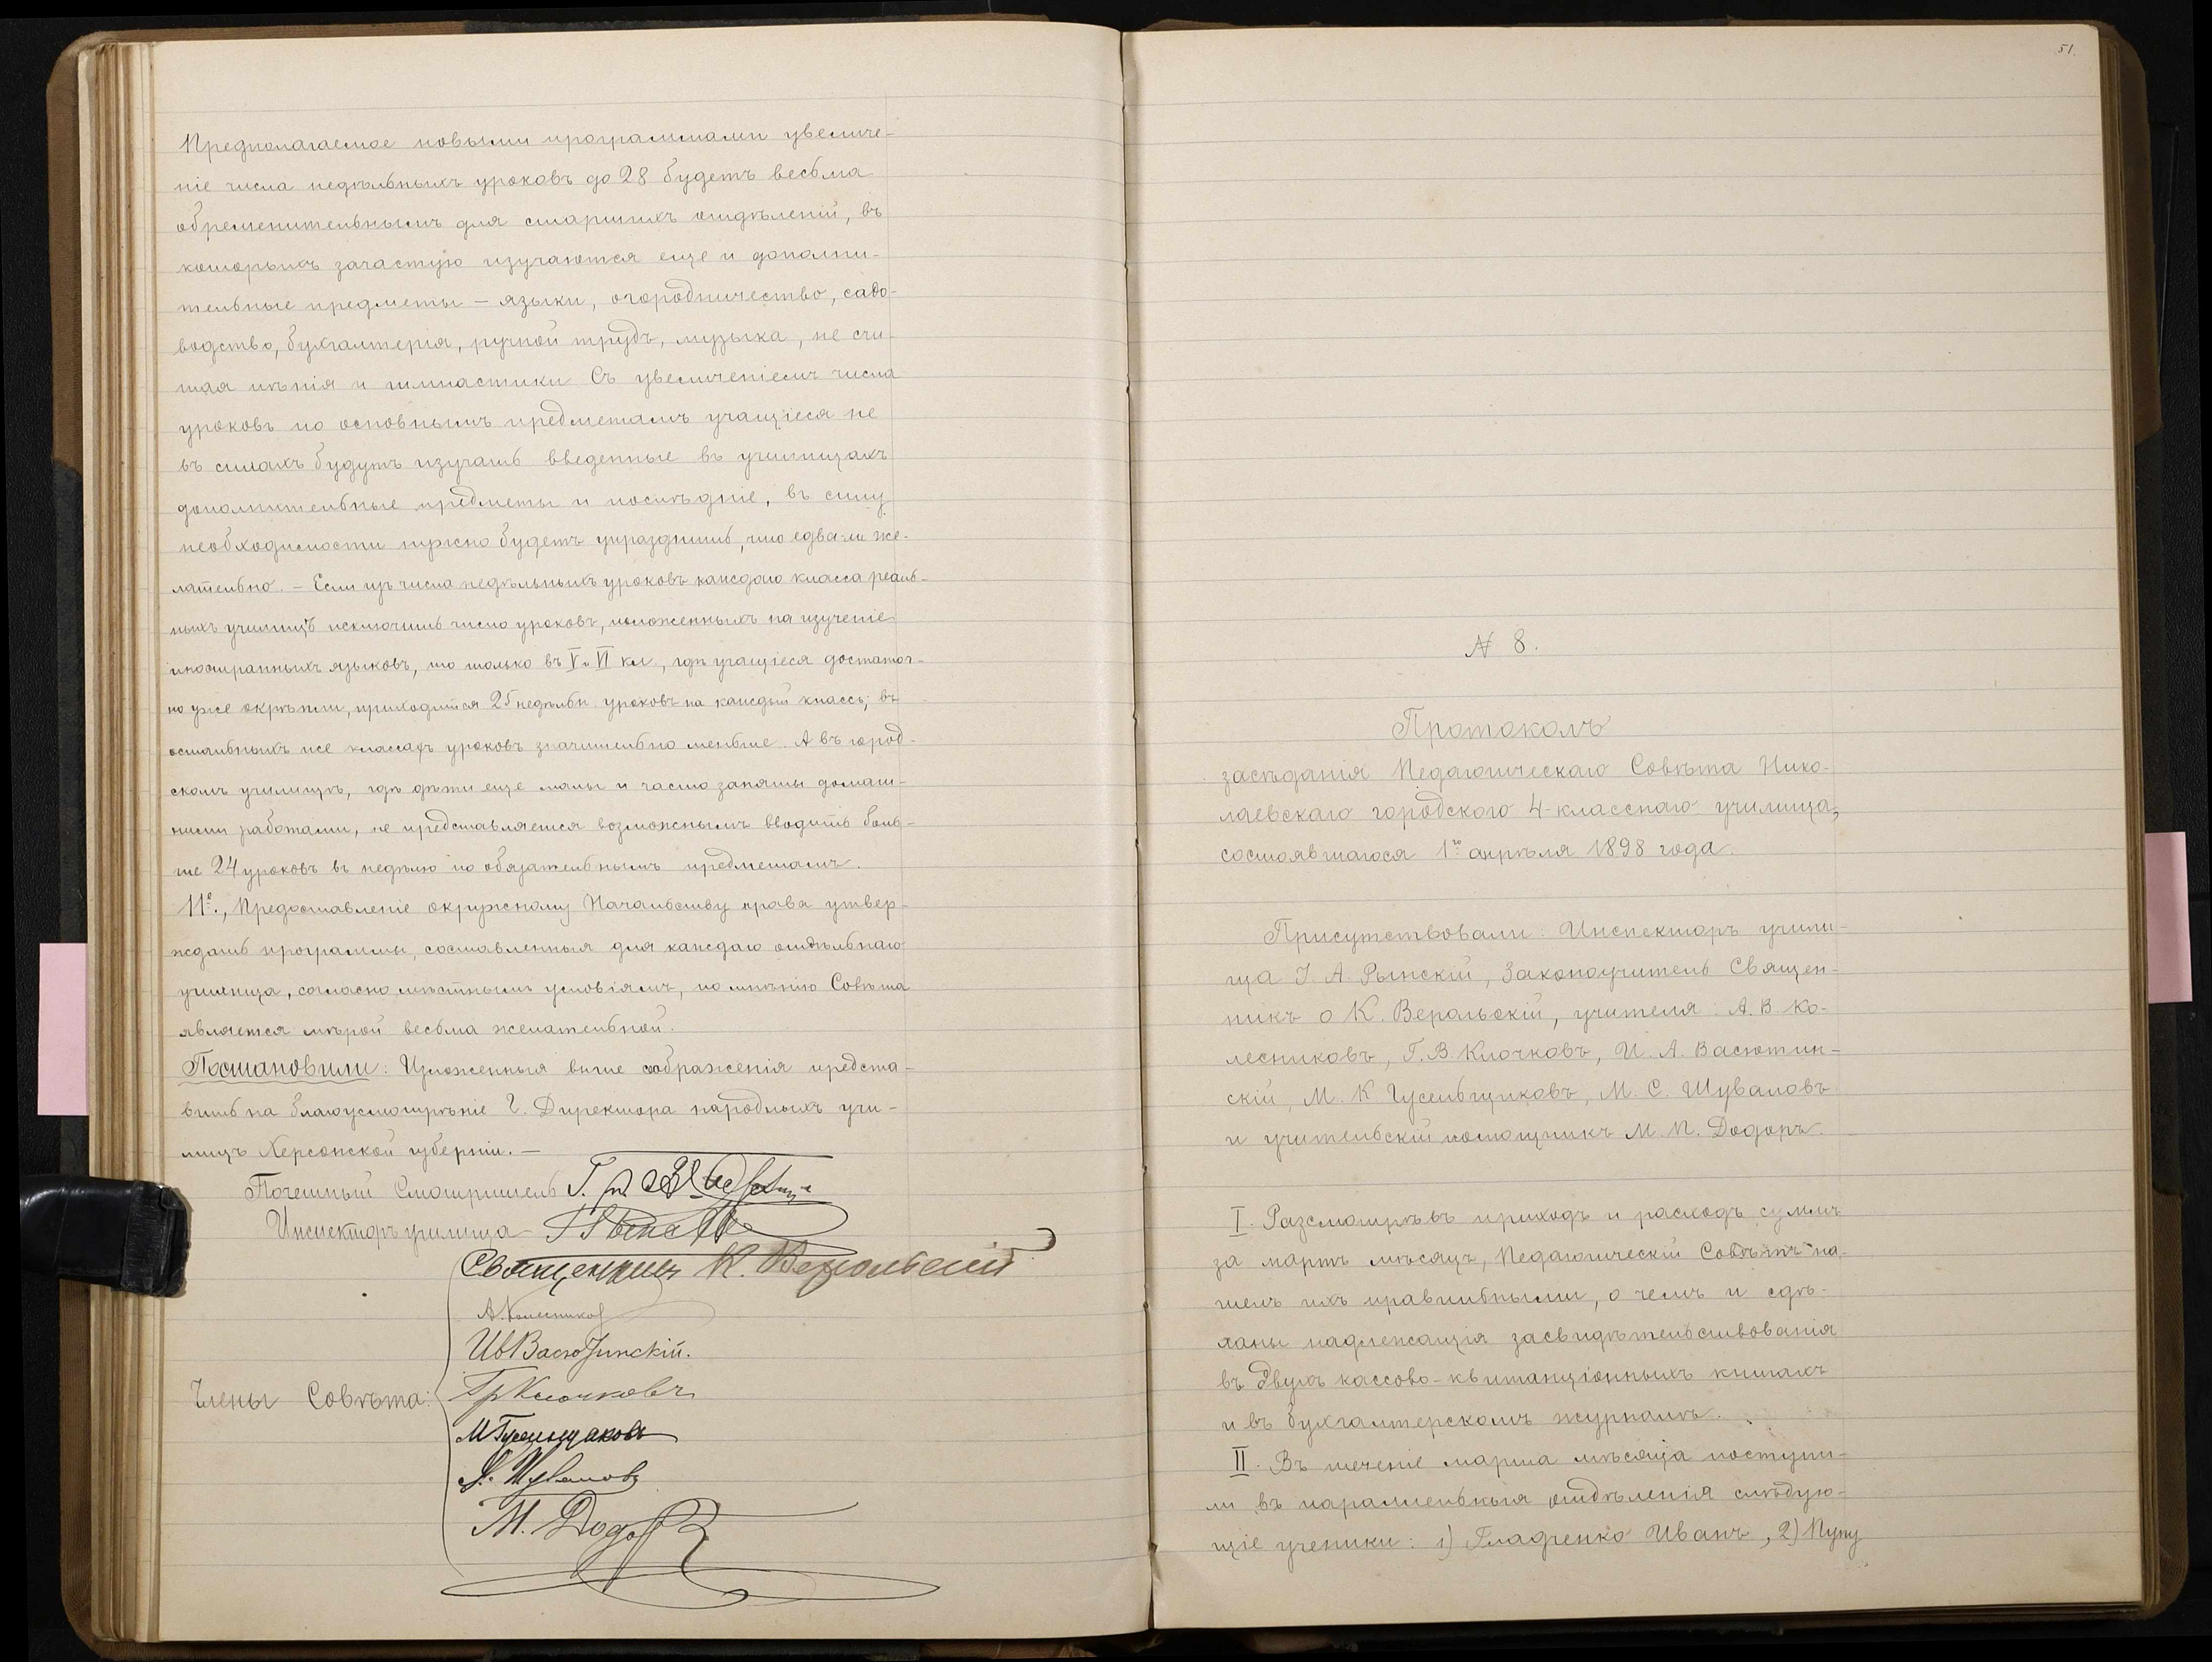 Предполагаемое новыми программами увеличе-
ніе числа недѣльныхъ уроковъ до 28 будетъ весьма
обременительнымъ для старшихъ отдѣленій, въ
которыхъ зачастую изучаются еще и дополни-
тельные предметы — языки, огородничество, садо-
водство, бухгалтерія, ручной трудъ, музыка, не счи-
тая пѣнія и гимнастики. Съ увеличеніемъ числа
уроковъ по основнымъ предметамъ учащіеся не
въ силахъ будутъ изучать введенные въ училищахъ
дополнительные предметы и послѣдніе, въ силу
необходимости нужно будетъ упразднить, что едва-ли же-
лательно. — Если изъ числа недѣльныхъ уроковъ каждаго класса реаль-
ныхъ училищъ исключить число уроковъ, положенныхъ на изученіе
иностранныхъ языковъ, то только въ V и VI кл., гдѣ учащіеся достаточ-
но уже окрѣпли, приходится 25 недѣльн. уроковъ на каждый классъ; въ
остальныхъ же классахъ уроковъ значительно меньше. А въ город-
скомъ училищѣ, гдѣ дѣти еще малы и часто заняты домаш-
ними работами, не представляется возможнымъ вводить боль-
ше 24 уроковъ въ недѣлю по обязательнымъ предметамъ.
11е., Предоставленіе окружному Начальству права утвер-
ждать программы, составленныя для каждаго отдѣльнаго
училища, согласно мѣстнымъ условіямъ, по мнѣнію Совѣта
является мѣрой весьма желательной.
Постановили: Изложенныя выше соображенія предста-
вить на благоусмотрѣніе Г. Директора народныхъ учи-
лищъ Херсонской губерніи. —
Почетный Смотритель
Инспекторъ училища
Священникъ К. Верольскій
А. Колесников
Ив Васютинскій.
Члены Совѣта: Гр Клочковъ
М Гусельщиковъ
М. Шуваловъ
М. Додоръ
51.
№ 8.
Протоколъ
засѣданія Педагогическаго Совѣта Нико-
лаевскаго городского 4-класснаго училища,
состоявшагося 1го апрѣля 1898 года.
Присутствовали: Инспекторъ учили-
ща І. А. Рынскій, Законоучитель Священ-
никъ о К. Верольскій, учителя: А. В. Ко-
лесниковъ, Г. В. Клочковъ, И. А. Васютин-
скій, М. К. Гусельщиковъ, М. С. Шуваловъ
и учительскій помощникъ М. П. Додоръ.
I. Разсмотрѣвъ приходъ и расходъ суммъ
за мартъ мѣсяцъ, Педагогическій Совѣтъ на-
шелъ ихъ правильными, о чемъ и сдѣ-
ланы надлежащія засвидѣтельствованія
въ двухъ кассово-квитанціонныхъ книгахъ
и въ бухгалтерскомъ журналѣ.
II. Въ теченіе марта мѣсяца поступи-
ли въ параллельныя отдѣленія слѣдую-
щіе ученики: 1) Гладченко Иванъ, 2) Пупу